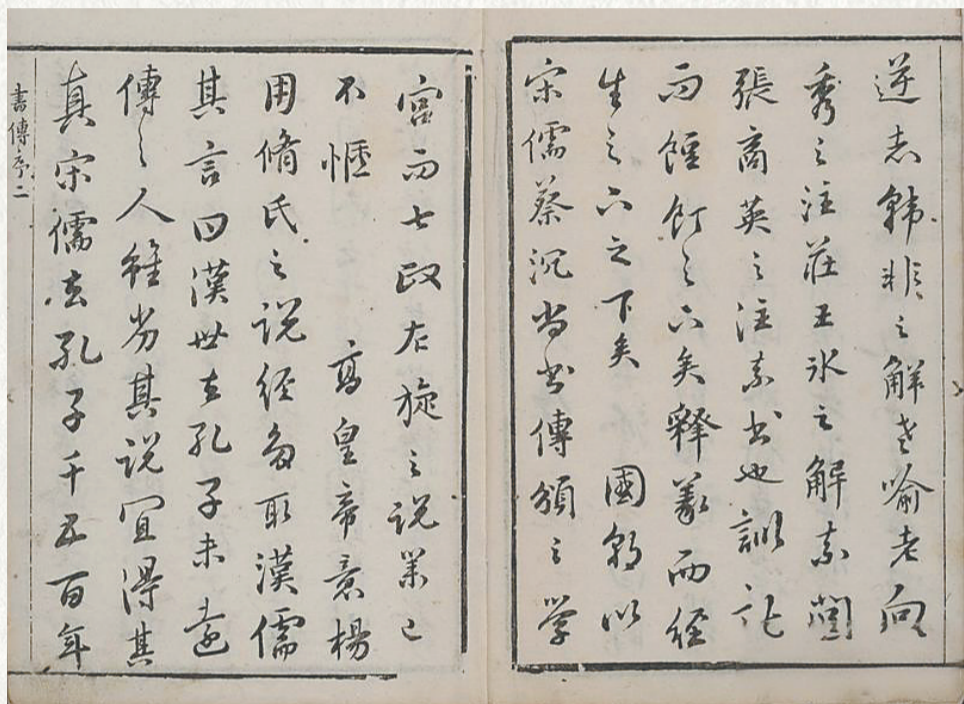 逆志韓非之解老喻老向
秀之注莊王氷之解素問
張商英之注素書也訓詁
而餖飣之矣釋義而經
生之之下矣 國朝以
宋儒蔡沉尚書傳頒之學
宮而七政左旋之説業已
不愜 高皇帝意楊
用脩氏之説經多取漢儒
其言曰漢世去孔子未遠
傳之人雖劣其説宜得其
真宋儒去孔子千五百年
書傳序二